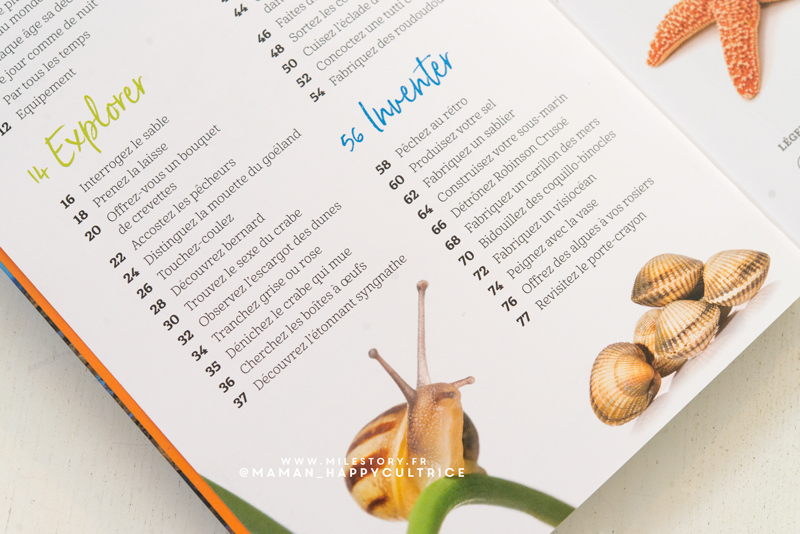 au monde
âque âge sa dé
e jour comme de nuit
Par tous les temps
12 Equipement
14 Explorer
16 Interrogez le sable
18 Prenez la laisse
20 Offrez-vous un bouquet
de crevettes
22 Accostez les pêcheurs
24 Distinguez la mouette du goéland
26 Touchez-coulez
28 Découvrez bernard
30 Trouvez le sexe du crabe
32 Observez l'escargot des dunes
34 Tranchez grise ou rose
35 Dénichez le crabe qui mue
36 Cherchez les boîtes à œufs
37 Découvrez l'étonnant syngnathe
44
46 Faites d
48 Sortez les co
50 Cuisez l'éclade d
52 Concoctez une tutti
54 Fabriquez des roudoudou
56 Inventer
58 Pêchez au rétro
60 Produisez votre sel
62 Fabriquez un sablier
64 Construisez votre sous-marin
66 Détrônez Robinson Crusoé
68 Fabriquez un carillon des mers
70 Bidouillez des coquillo-binocles
72 Fabriquez un visiocéan
74 Peignez avec la vase
76 Offrez des algues à vos rosiers
77 Revisitez le porte-crayon
LÉGE
WWW.MILESTORY.FR
@MAMAN_HAPPYCULTRICE